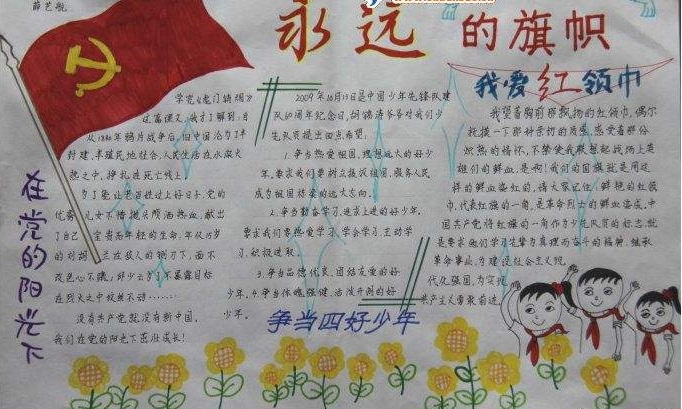 薛艺航
永远的旗帜
我爱红领巾
学完《虎门销烟》
这篇课文,我才了解到:自
从1840年鸦片战争后,旧中国沦为了半
封建、半殖民地社会,人民生活在水深火
热之中,挣扎在死亡线上。
为了能让老百姓过上好日子,党的
优秀儿女不惜抛头颅洒热血,献出
了自己宝贵而年轻的生命。年仅15岁
的刘胡兰在敌人的铡刀下,面不
改色心不跳,邱少云为了不暴露目标
在烈火之中纹丝不动……
没有共产党就没有新中国,
我们在党的阳光下茁壮成长!
2009年10月13日是中国少年先锋队建
队60周年纪念日,胡锦涛爷爷对我们少
先队员提出四点希望:
1.争当热爱祖国、理想远大的好少
年,要求我们要树立振兴祖国、服务人民
成为祖国栋梁的远大志向。
2.争当勤奋学习、追求上进的好少年。
要求我们要热爱学习、学会学习、主动学
习、积极进取。
3.争当品德优良、团结友爱的好
少年。4.争当体魄强健、活泼开朗的好
少年。
争当四好少年
我望着胸前那飘扬的红领巾,偶尔
抚摸一下那种亲切的质量,感受着那份
炽热的情怀,不禁使我联想起战场上英
雄们的鲜血,是啊!我们的国旗就是用这
样的鲜血染红的,请大家记住,鲜艳的红领
巾,代表红旗的一角,是革命烈士的鲜血染成,中
国共产党将红旗的一角作为少先队员的标志,就
是要求他们学习先辈为真理而奋斗的精神,继承
革命事业,为建设社会主义现
代化强国,为实现
共产主义勇敢前进。
在党的阳光下